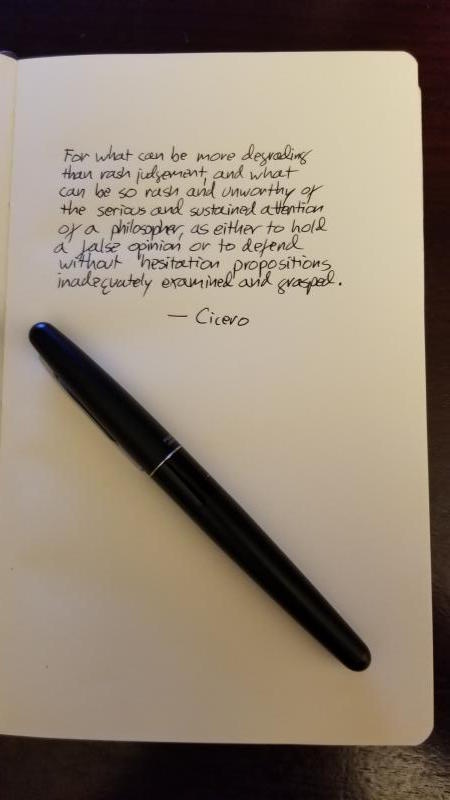 For what can be more degrading
than rash judgement, and what
can be so rash and unworthy of
the serious and sustained attention
of a philosopher, as either to hold
a false opinion or to defend
without hesitation propositions
inadequately examined and grasped.
— Cicero